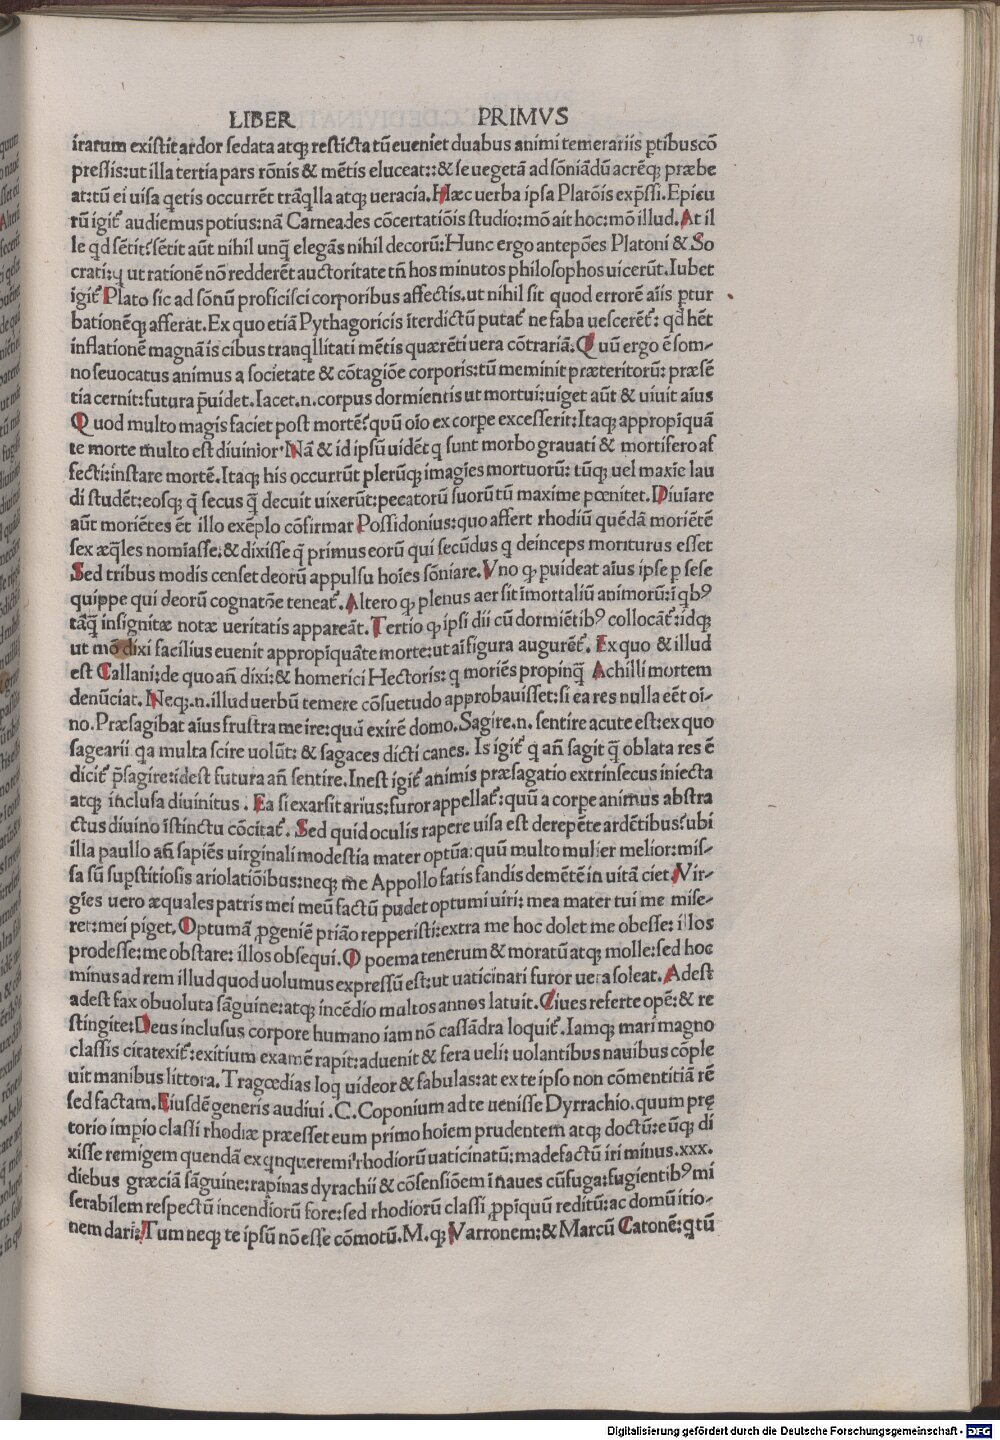 34
LIBER PRIMVS
iratum existit ardor sedata atqꝫ resticta tū eueniet duabus animi temerariis ꝑtibus cō
pressis: ut illa tertia pars rōnis & mētis eluceat:: & se uegetā ad sōniādū acrēqꝫ præbe
at: tū ei uisa q̄etis occurrēt trāq̄lla atqꝫ ueracia. Hæc uerba ipsa Platōis exp̄ssi. Epicu
rū igit᷑ audiemus potius: nā Carneades cōcertatiōis studio: mō ait hoc: mō illud. At il
le qd sētit? sētit aūt nihil unq̄ elegās nihil decorū: Hunc ergo antepōes Platoni & So
crati: q ut rationē nō redderēt auctoritate tn̄ hos minutos philosophos uicerūt. Iubet
igit᷑ Plato sic ad sōnū proficisci corporibus affectis. ut nihil sit quod errorē aīis ꝑtur
bationēqꝫ afferat. Ex quo etiā Pythagoricis īterdictū putat᷑ ne faba uescerēt᷑: qd hēt
inflationē magnā is cibus tranq̄llitati mētis quærēti uera cōtrariā. Quū ergo ē som-
no seuocatus animus a societate & cōtagiōe corporis: tū meminit præteritorū: præsē
tia cernit: futura p̄uidet. Iacet .n. corpus dormientis ut mortui: uiget aūt & uiuit aīus
Quod multo magis faciet post mortē? quū oīo ex corpe excesserit: Itaqꝫ appropīquā
te morte multo est diuinior. Nā & id ipsū uidēt q sunt morbo grauati & mortifero af
fecti: instare mortē. Itaqꝫ his occurrūt plerūqꝫ imagīes mortuorū: tūqꝫ uel maxīe lau
di studēt: eosqꝫ q̄ secus q̄ decuit uixerūt: pecatorū suorū tū maxime pœnitet. Diuīare
aūt moriētes ēt illo exēplo cōfirmat Possidonius: quo affert rhodiū quēdā moriētē
sex æq̄les nomīasse: & dixisse q̄ primus eorū qui secūdus q deinceps moriturus esset
Sed tribus modis censet deorū appulsu hoīes sōniare. Vno qꝫ puideat aīus ipse p sese
quippe qui deorū cognatōe teneat᷑. Altero qꝫ plenus aer sit īmortaliū animorū: ī qbꝰ
tāq̄ insignitæ notæ ueritatis appareāt. Tertio qꝫ ipsi dii cū dormiētibꝰ collocāt᷑: idqꝫ
ut mō dixi facilius euenit appropīquāte morte: ut aī figura augurēt᷑. Ex quo & illud
est Callani: de quo an̄ dixi: & homerici Hectoris: q moriēs propinq̄ Achilli mortem
denūciat. Neqꝫ .n. illud uerbū temere cōsuetudo approbauisset: si ea res nulla eēt oī-
no. Præsagibat aīus frustra me ire: quū exirē domo. Sagire .n. sentire acute est: ex quo
sagearii qa multa scire uolūt: & sagaces dicti canes. Is igit᷑ q an̄ sagit q̄ oblata res ē
dicit᷑ p̄sagire: idest futura an̄ sentire. Inest igit᷑ animis præsagatio extrinsecus iniecta
atqꝫ inclusa diuinitus. Ea si exarsit arius: furor appellat᷑: quū a corpe animus abstra
ctus diuino īstinctu cōcitat᷑. Sed quid oculis rapere uisa est derepēte ardētibus? ubi
illa paullo an̄ sapiēs uirginali modestia mater optūa: quū multo mulier melior: mis-
sa sū supstitiosis ariolatiōibus: neqꝫ me Appollo fatis fandis demētē in uitā ciet. Vir-
gīes uero æquales patris mei meū factū pudet optumi uiri: mea mater tui me mise-
ret: mei piget. Optumā ꝓgeniē priāo repperisti: extra me hoc dolet me obesse: illos
prodesse: me obstare: illos obsequi. O poema tenerum & moratū atqꝫ molle: sed hoc
minus ad rem illud quod uolumus expressū est: ut uaticinari furor uera soleat. Adest
adest fax obuoluta sāguine: atqꝫ incēdio multos annos latuit. Ciues referte opē: & re
stingite: Deus inclusus corpore humano iam nō cassādra loquit᷑. Iamqꝫ mari magno
classis citatexit᷑: exitium examē rapit: aduenit & fera ueli: uolantibus nauibus cōple
uit manibus littora. Tragœdias loq uideor & fabulas: at ex te ipso non cōmentitiā rē
sed factam. Eiusdē generis audiui .C. Coponium ad te uenisse Dyrrachio. quum prę
torio impio classi rhodiæ præesset eum primo hoīem prudentem atqꝫ doctū: eūqꝫ di
xisse remigem quendā ex qnqueremi rhodiorū uaticinatū: madefactū iri minus .xxx.
diebus græciā sāguine: rapinas dyrachii & cōsensiōem ī naues cū fuga: fugientibꝰ mi
serabilem respectū incendiorū fore: sed rhodiorū classi ꝓpīquū reditū: ac domū itio-
nem dari: Tum neqꝫ te ipsū nō esse cōmotū. M. qꝫ Varronem: & Marcū Catonē: q tū
Digitalisierung gefördert durch die Deutsche Forschungsgemeinschaft - DFG